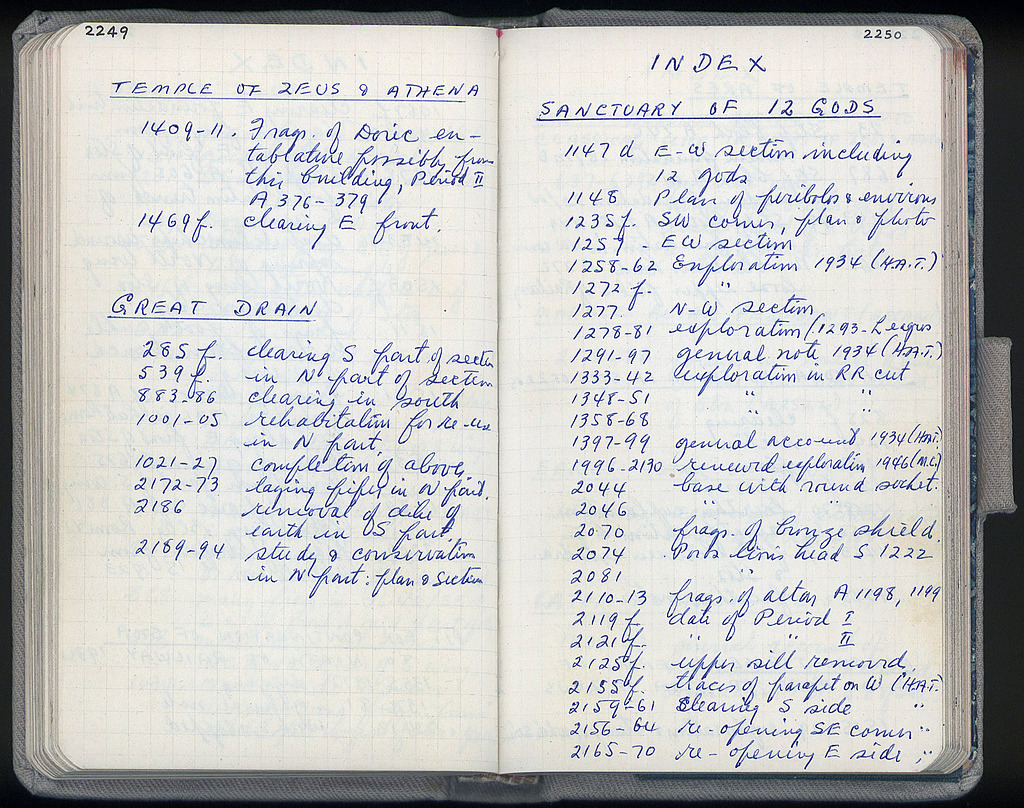 2249
TEMPLE OF ZEUS & ATHENA
1409-11. Frags. of Doric en-
tablature possibly from
this building, Period II
A 376-379
1469 f. clearing E front.
GREAT DRAIN
285 f. clearing S part of section
539 f. in N part of section
883-86 clearing in south
1001-05 rehabilitation for re-use
in N part,
1021-27 completion of above,
2172-73 laying pipes in N part.
2186 removal of dike of
earth in S part
2189-94 study & conservation
in N part: plan & section
2250
INDEX
SANCTUARY OF 12 GODS
1147 d E-W section including
12 gods
1148 Plan of peribolos & environs
1235 f. SW corner, plan & photo
1257 - EW section
1258-62 Exploration 1934 (H.A.T.)
1272 f. "
1277. N-W section
1278-81 exploration/1293-Leagros
1291-97 general note 1934 (H.A.T.)
1333-42 exploration in RR cut
1348-51 " "
1358-68 " "
1397-99 general account 1934 (H.A.T.)
1996-2130 renewed exploration 1946 (M.C.)
2044 base with round socket.
2046 " "
2070 frags. of bronze shield.
2074 Poros lion's head S 1222
2081 "
2110-13 frags. of altar A 1198, 1199
2119 f. date of Period I
2121 f. " " II
2125 f. upper sill removed.
2155 f. traces of parapet on W (H.A.T.
2159-61 clearing S side "
2156-64 re-opening SE corner "
2165-70 re-opening E side "